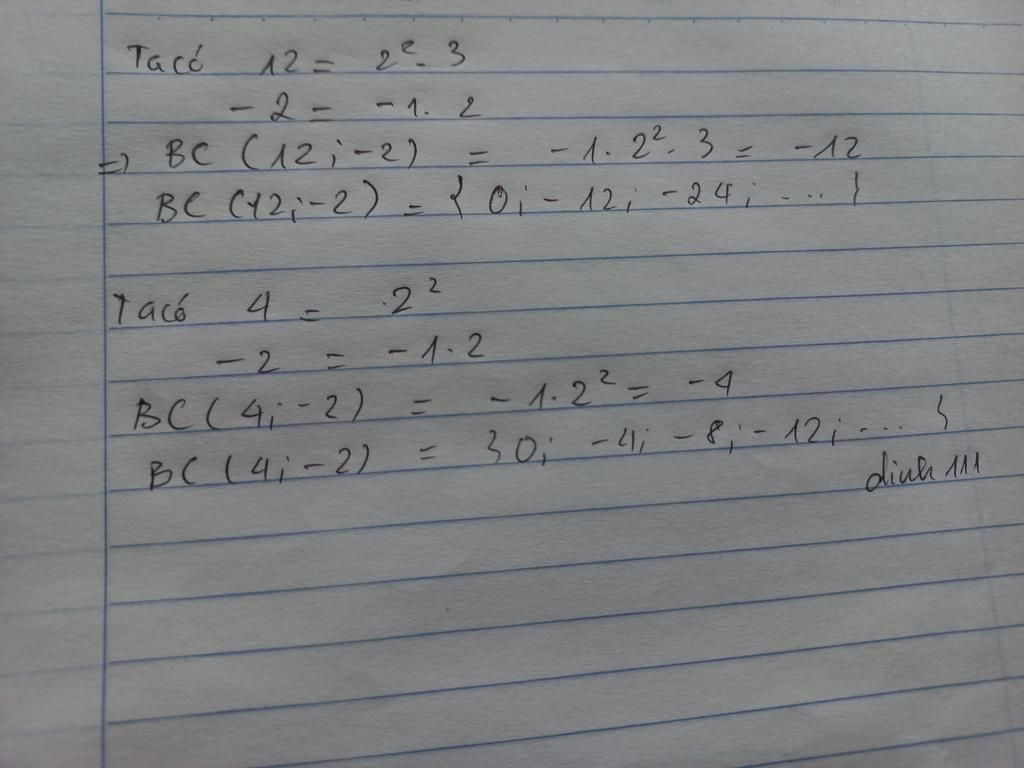 Ta có 12 = 2². 3
- 2 = -1. 2
=) BC (12; -2) = -1. 2². 3 = -12
BC (12; -2) = { 0; - 12; -24; ... }
Ta có 4 = .2²
- 2 = -1. 2
BC ( 4; -2) = - 1. 2² = -4
BC ( 4; -2) = } 0; -4; -8; -12; ... }
dinh 111